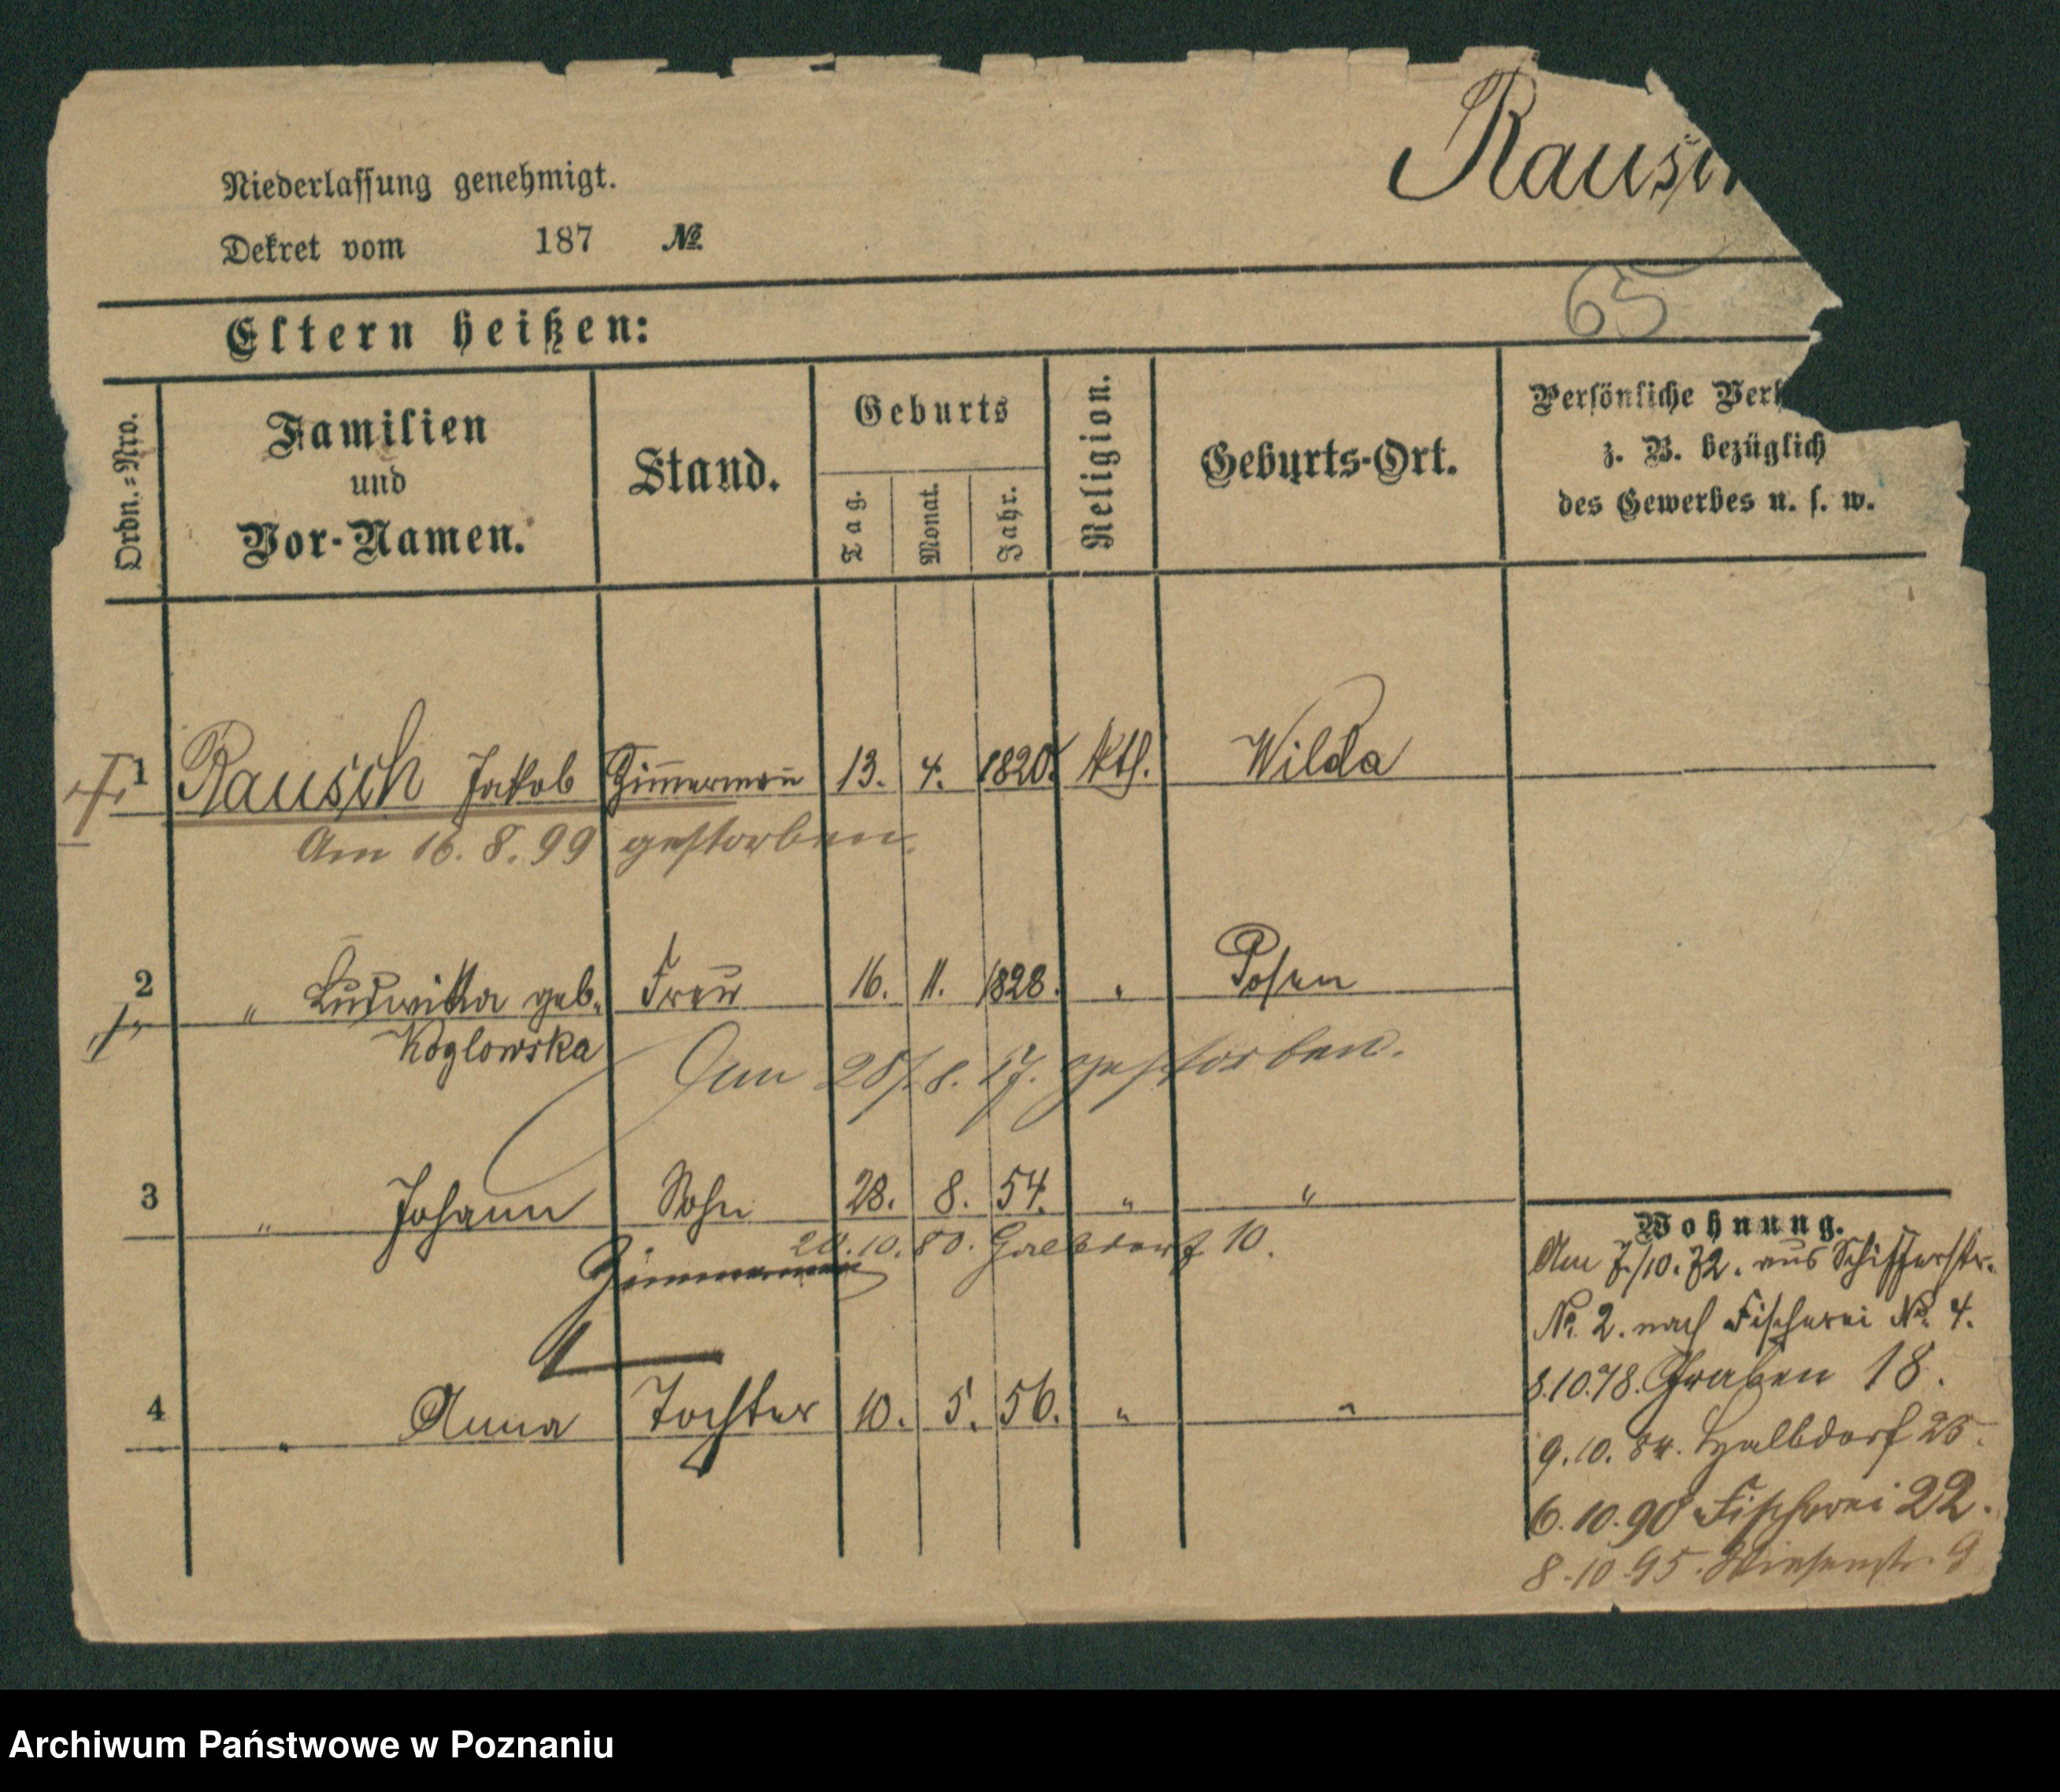 Rausch
Niederlassung genehmigt.
Dekret vom 187 №
65
Eltern heißen:
Ordn.-Nro.
Familien
und
Vor-Namen.
Stand.
Geburts
Tag.
Monat.
Jahr.
Religion.
Geburts-Ort.
Persönliche Verh
z. B. bezüglich
des Gewerbes u. s. w.
1 Rausch Jakob Zimmermann 13. 4. 1820. ktl. Wilda
Am 16. 8. 99 gestorben.
2 " Ludwika geb. Frau 16. 11. 1828. " Posen
Koglowska
Am 28/8. 17. gestorben.
3 " Johann Sohn 28. 8. 54. " "
28.10.80. Halbdorf 10.
Zimmermann
4 " Anna Tochter 10. 5. 56. " "
Wohnung.
Am 7./10.72. aus Schifferstr.
№ 2. nach Fischerei № 4.
8.10.78. Graben 18.
9.10.84. Halbdorf 25.
6.10.90 Fischerei 22.
8.10.95. Wiesenstr. 9
Archiwum Państwowe w Poznaniu